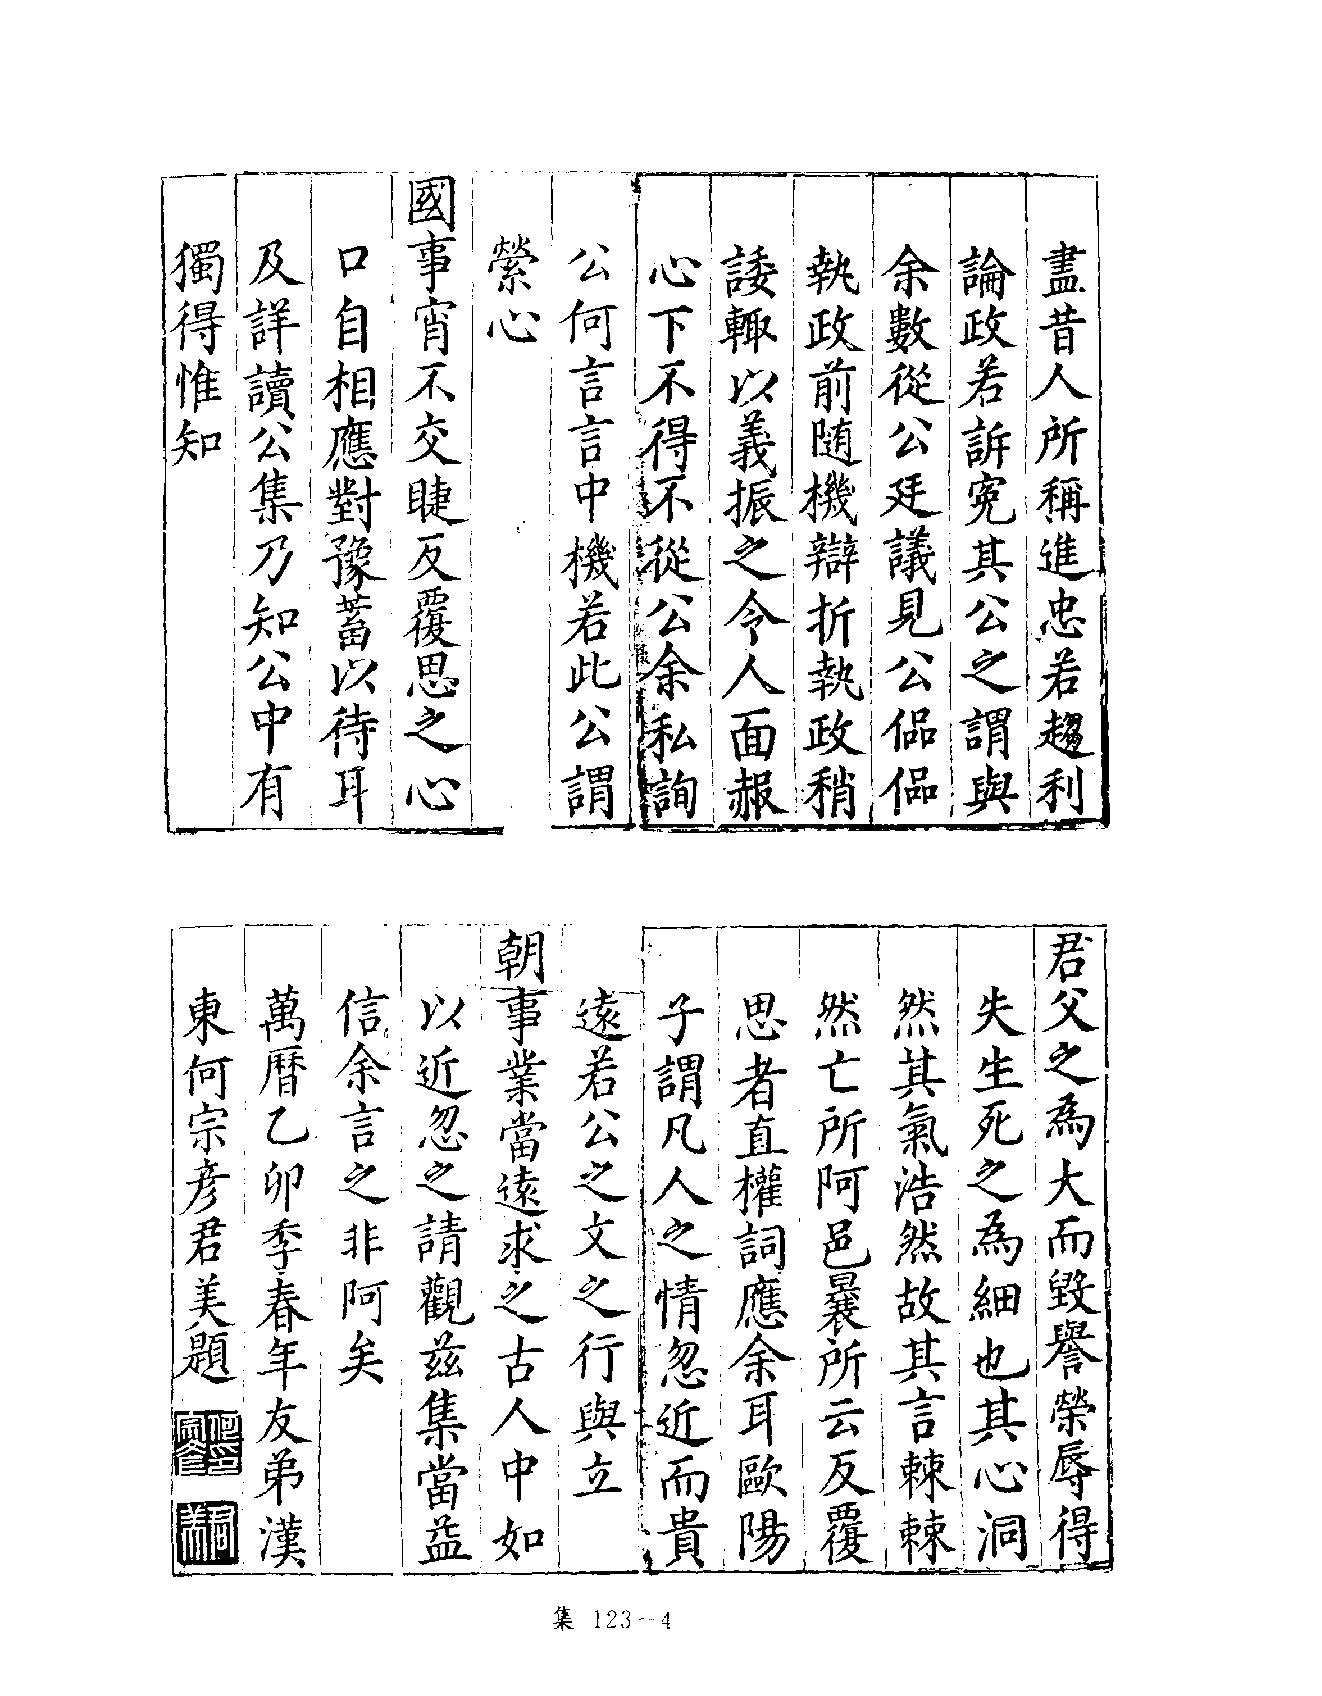 盡昔人所稱進忠若趨利
論政若訴寃其公之謂與
余數從公廷議見公偘偘
執政前随機辯折執政稍
諉輙以義振之令人面赧
心下不得不從公余私詢
公何言言中機若此公謂
縈心
國事宵不交睫反覆思之心
口自相應對豫蓄以待耳
及詳讀公集乃知公中有
獨得惟知
君父之為大而毀譽榮辱得
失生死之為細也其心洞
然其氣浩然故其言棘棘
然亡所阿邑曩所云反覆
思者直權詞應余耳歐陽
子謂凡人之情忽近而貴
遠若公之文之行與立
朝事業當遠求之古人中如
以近忽之請觀兹集當益
信余言之非阿矣
萬曆乙卯季春年友弟漢
東何宗彦君美題
集 123－4